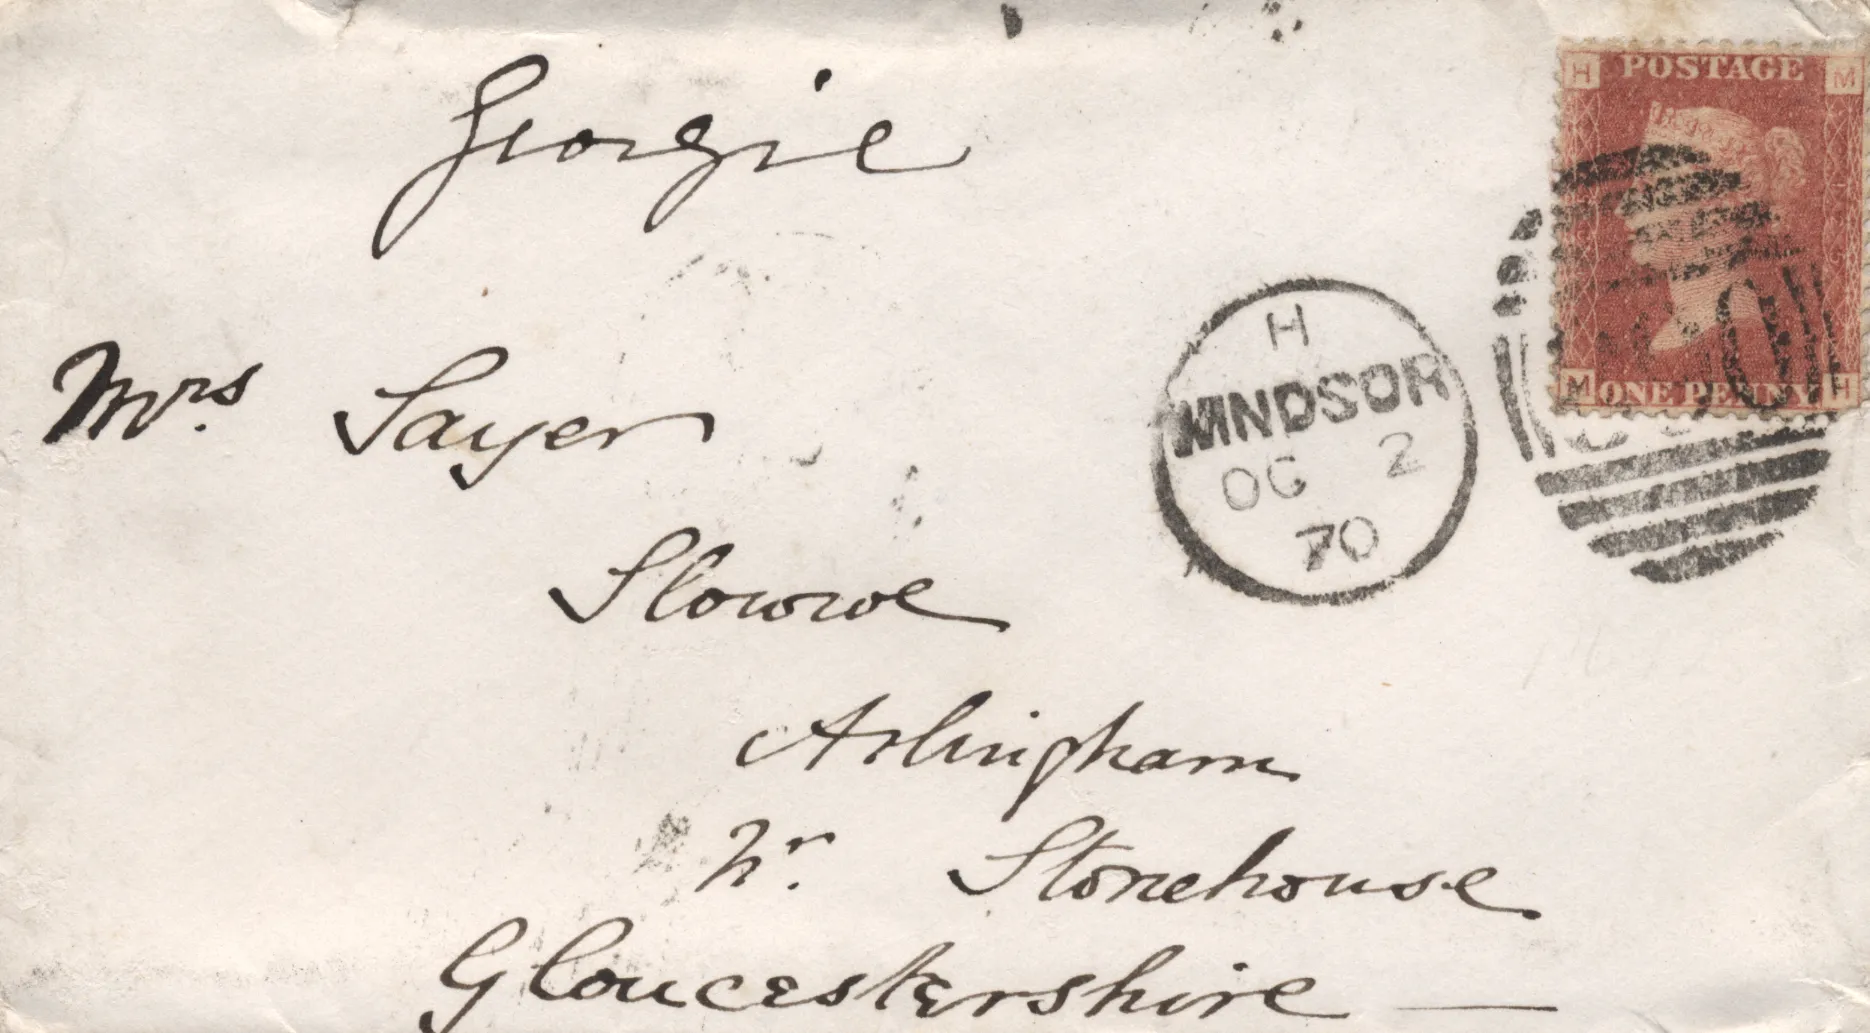 Georgie
H POSTAGE M
M ONE PENNY H
H
WINDSOR
OC 2
70
Mrs. Sayer
Slowwe
Arlingham
Nr. Stonehouse
Gloucestershire —